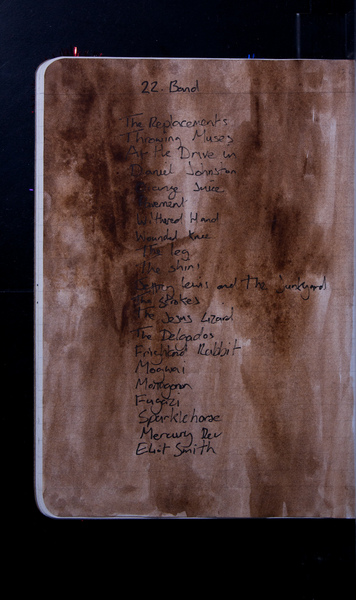 22. Band
The Replacements
Throwing Muses
At the Drive in
Daniel Johnston
Orange Juice
Pavement
Withered Hand
Wounded Knee
The leg
The shins
Jeffrey Lewis and The Junkyard
The strokes
The Jesus Lizard
The Delgados
Frightend Rabbit
Mogwai
Fugazi
Sparklehorse
Mercury Rev
Elliot Smith